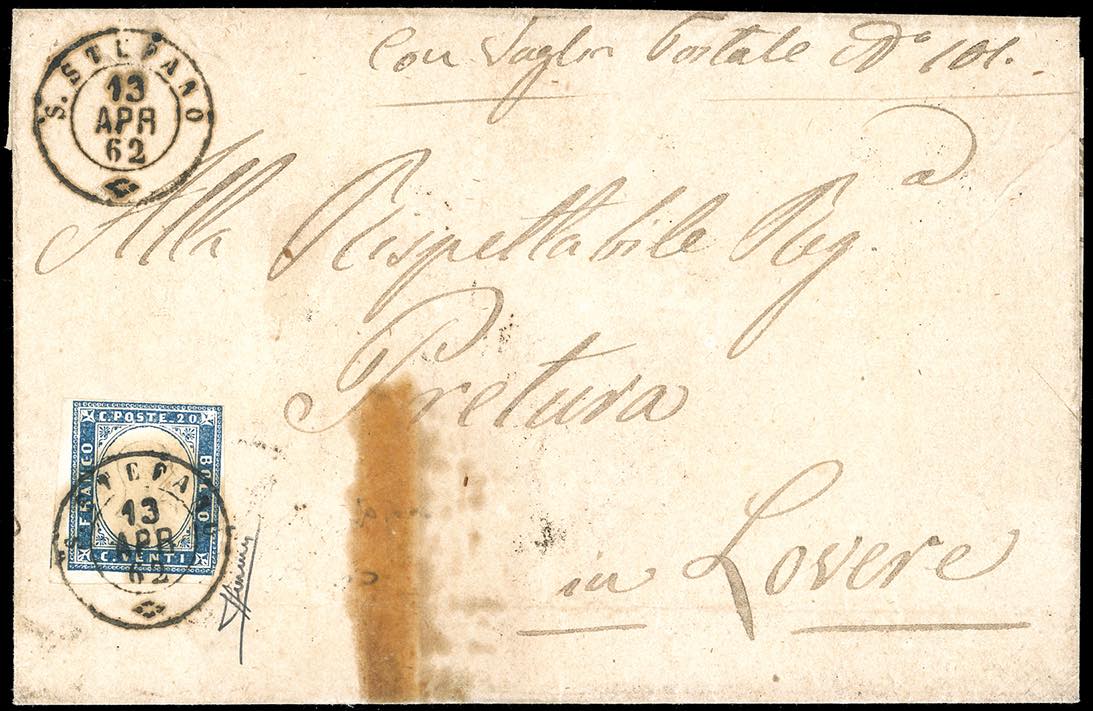 S. STEFANO
13
APR
62
Con Vaglia Postale No 101.
Alla Rispettabile Reg.a
Pretura
in Lovere
C. POSTE 20
FRANCO
BOLLO
C. VENTI
S. STEFANO
13
APR
62